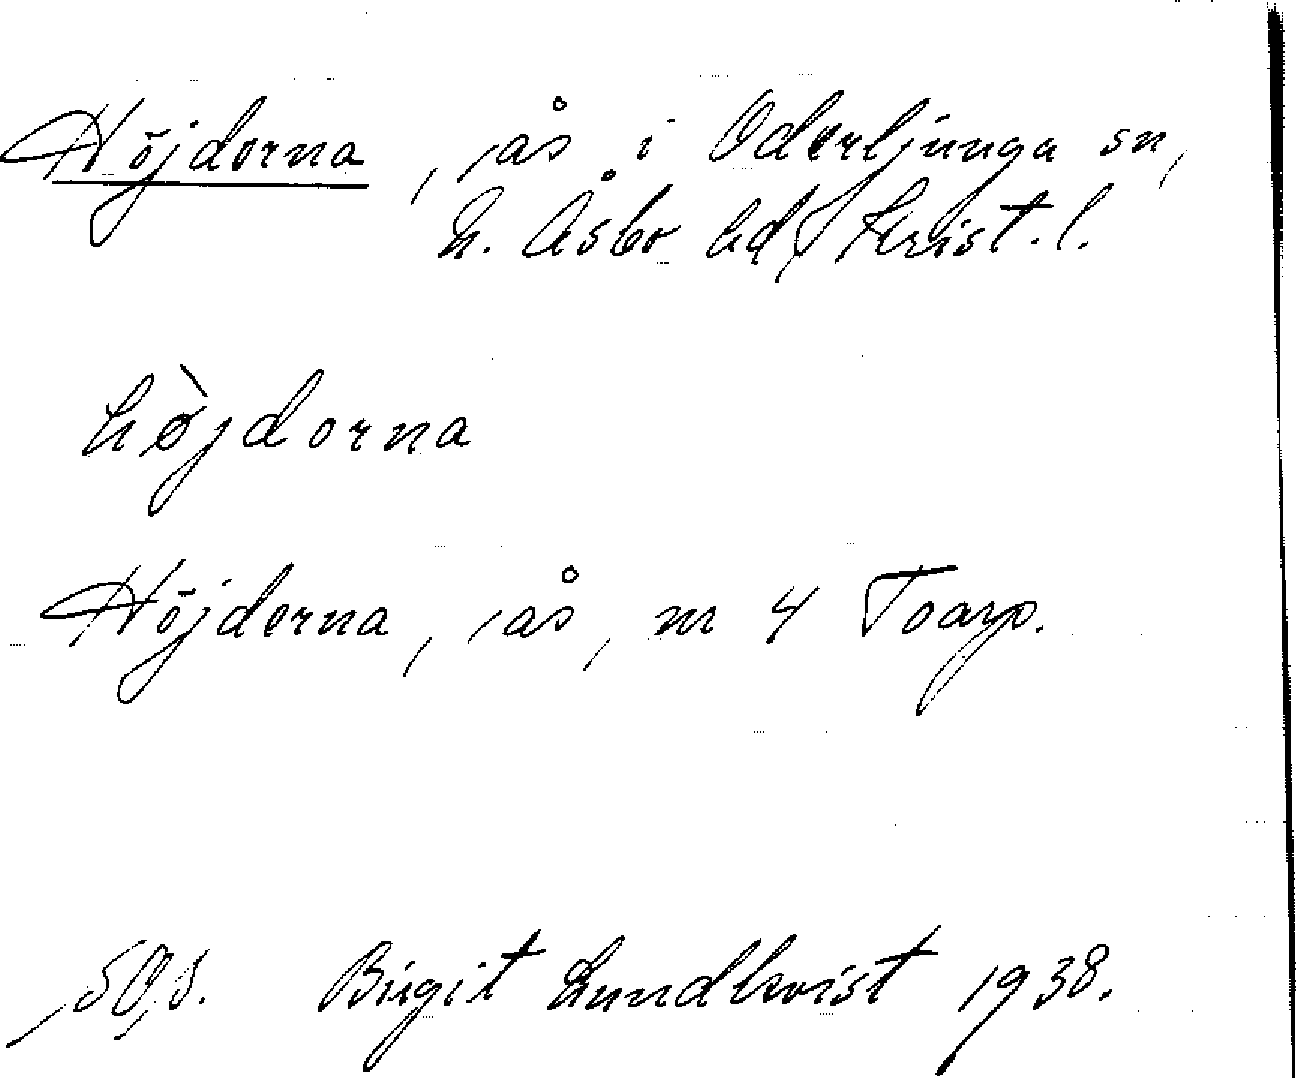 Höjderna, ås i Oderljunga sn,
N. Åsbo hd, Krist. l.
hø̀jdorna
Höjderna, ås, nr 4 Toarp.
Birgit Lundkvist 1938.